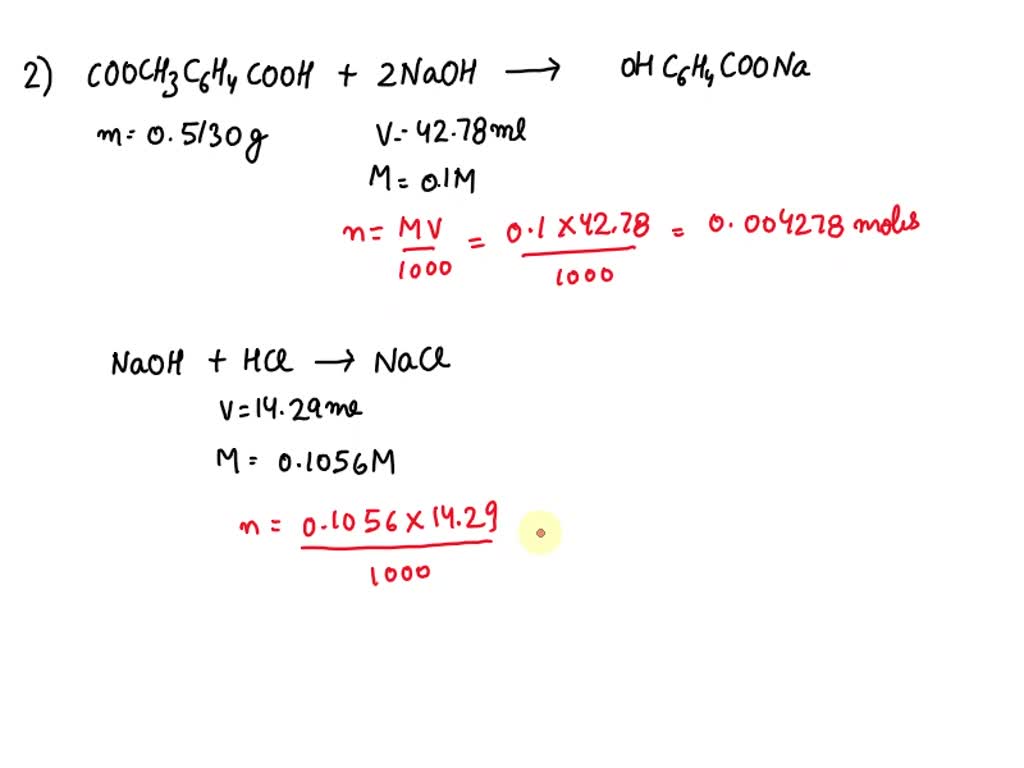 2) COOCH₃C₆H₄COOH + 2NaOH ⟶ OHC₆H₄COONa
m= 0.5130g V=42.78ml
M= 0.1M
n= MV/1000 = 0.1×42.78/1000 = 0.004278 moles
NaOH + HCl → NaCl
V=14.29ml
M= 0.1056M
n= 0.1056×14.29/1000